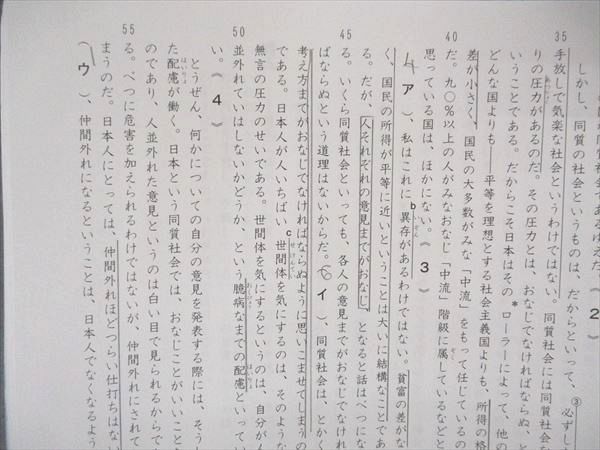 35
しかし、同質の社会というものは、だからといって、③必ずし
手放しで気楽な社会というわけではない。同質社会には同質社会な
りの圧力があるのだ。その圧力とは、おなじでなければならぬ、と
いうことである。だからこそ日本はその*ローラーによって、他の
どんな国よりも――平等を理想とする社会主義国よりも、所得の格
差が小さく、国民の大多数がみな「中流」をもって任じているの
40
だ。九〇%以上の人がみなおなじ「中流」階級に属しているなどと
思っている国は、ほかにない。《 3 》
( ア )、私はこれにb異存があるわけではない。貧富の差がな
く、国民の所得が平等に近いということは大いに結構なことであ
る。だが、人それぞれの意見までがおなじ、となると話はべつにな
45
る。いくら同質社会といっても、各人の意見までがおなじでなけれ
ばならぬという道理はないからだ。( イ )、同質社会は、とかく
考え方までがおなじでなければならぬように思いこませてしまうの
である。日本人が人いちばいc世間体を気にするのは、そのような
無言の圧力のせいである。世間体を気にするというのは、自分が人
50
並外れていはしないかどうか、という臆病なまでの配慮といってい
い。《 4 》
とうぜん、何かについての自分の意見を発表する際には、そうし
た配慮が働く。日本という同質社会では、おなじことがいいこと
のであり、人並外れた意見というのは白い目で見られるからで
る。べつに危害を加えられるわけではないが、仲間外れにされて
55
まうのだ。日本人にとっては、仲間外れほどつらい仕打ちはない
( ウ )、仲間外れになるということは、日本人でなくなるよう
《 2 》